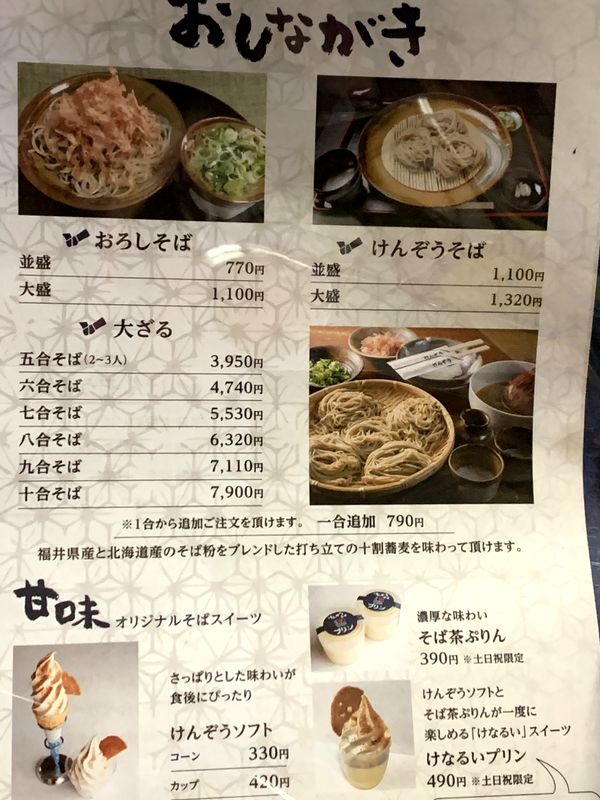 おしながき
おろしそば
並盛 770円
大盛 1,100円
けんぞうそば
並盛 1,100円
大盛 1,320円
大ざる
五合そば(2~3人) 3,950円
六合そば 4,740円
七合そば 5,530円
八合そば 6,320円
九合そば 7,110円
十合そば 7,900円
※1合から追加ご注文を頂けます。 一合追加 790円
福井県産と北海道産のそば粉をブレンドした打ち立ての十割蕎麦を味わって頂けます。
甘味 オリジナルそばスイーツ
さっぱりとした味わいが
食後にぴったり
けんぞうソフト
コーン 330円
カップ 420円
プリン
濃厚な味わい
そば茶ぷりん
390円 ※土日祝限定
けんぞうソフトと
そば茶ぷりんが一度に
楽しめる「けなるい」スイーツ
けなるいプリン
490円 ※土日祝限定